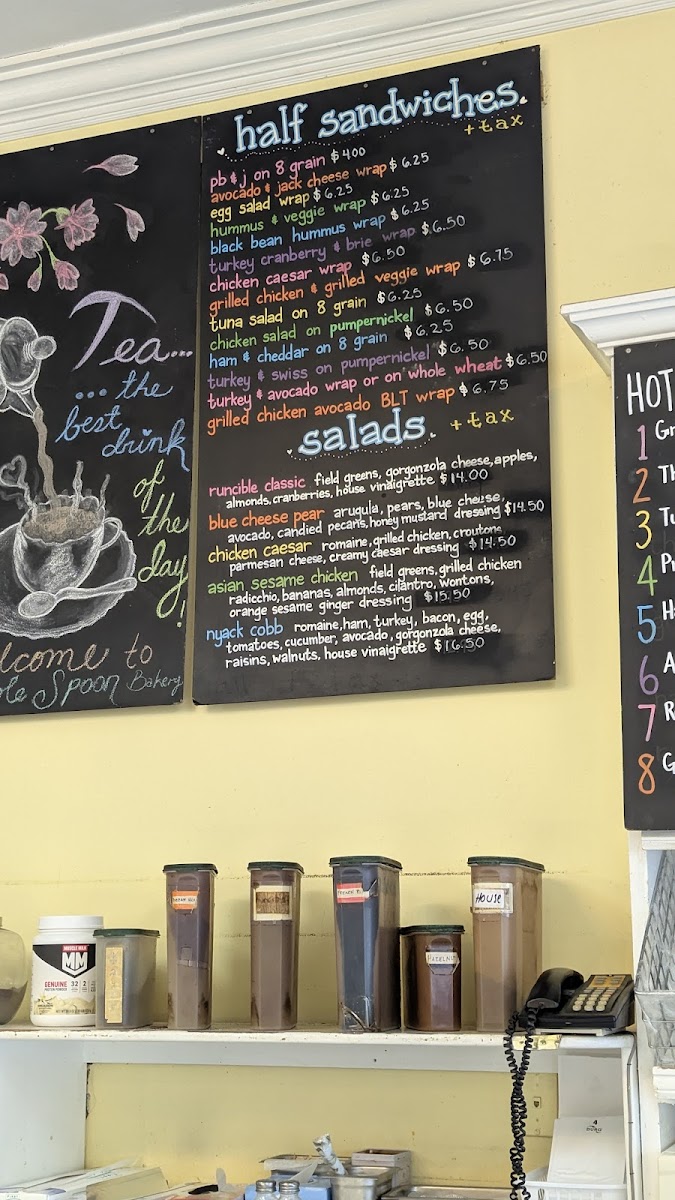 half sandwiches
+ tax
pb & j on 8 grain $4.00
avocado & jack cheese wrap $6.25
egg salad wrap $6.25
hummus & veggie wrap $6.25
black bean hummus wrap $6.25
turkey cranberry & brie wrap $6.50
chicken caesar wrap $6.50
grilled chicken & grilled veggie wrap $6.75
tuna salad on 8 grain $6.25
chicken salad on pumpernickel $6.50
ham & cheddar on 8 grain $6.25
turkey & swiss on pumpernickel $6.50
turkey & avocado wrap or on whole wheat $6.50
grilled chicken avocado BLT wrap $6.75
salads + tax
runcible classic field greens, gorgonzola cheese, apples,
almonds, cranberries, house vinaigrette $14.00
blue cheese pear arugula, pears, blue cheese,
avocado, candied pecans, honey mustard dressing $14.50
chicken caesar romaine, grilled chicken, croutons,
parmesan cheese, creamy caesar dressing $14.50
asian sesame chicken field greens, grilled chicken
radicchio, bananas, almonds, cilantro, wontons,
orange sesame ginger dressing $15.50
nyack cobb romaine, ham, turkey, bacon, egg,
tomatoes, cucumber, avocado, gorgonzola cheese,
raisins, walnuts. house vinaigrette $16.50
Tea...
...the
best
drink
of
the
day!
lcome to
le Spoon Bakery
HOT
1 Gr
2 Th
3 Tu
4 Pr
5 Ha
6 A
7 R
8 G
MUSCLE MILK
MM
GENUINE
32
HAZELNUT
HOUSE